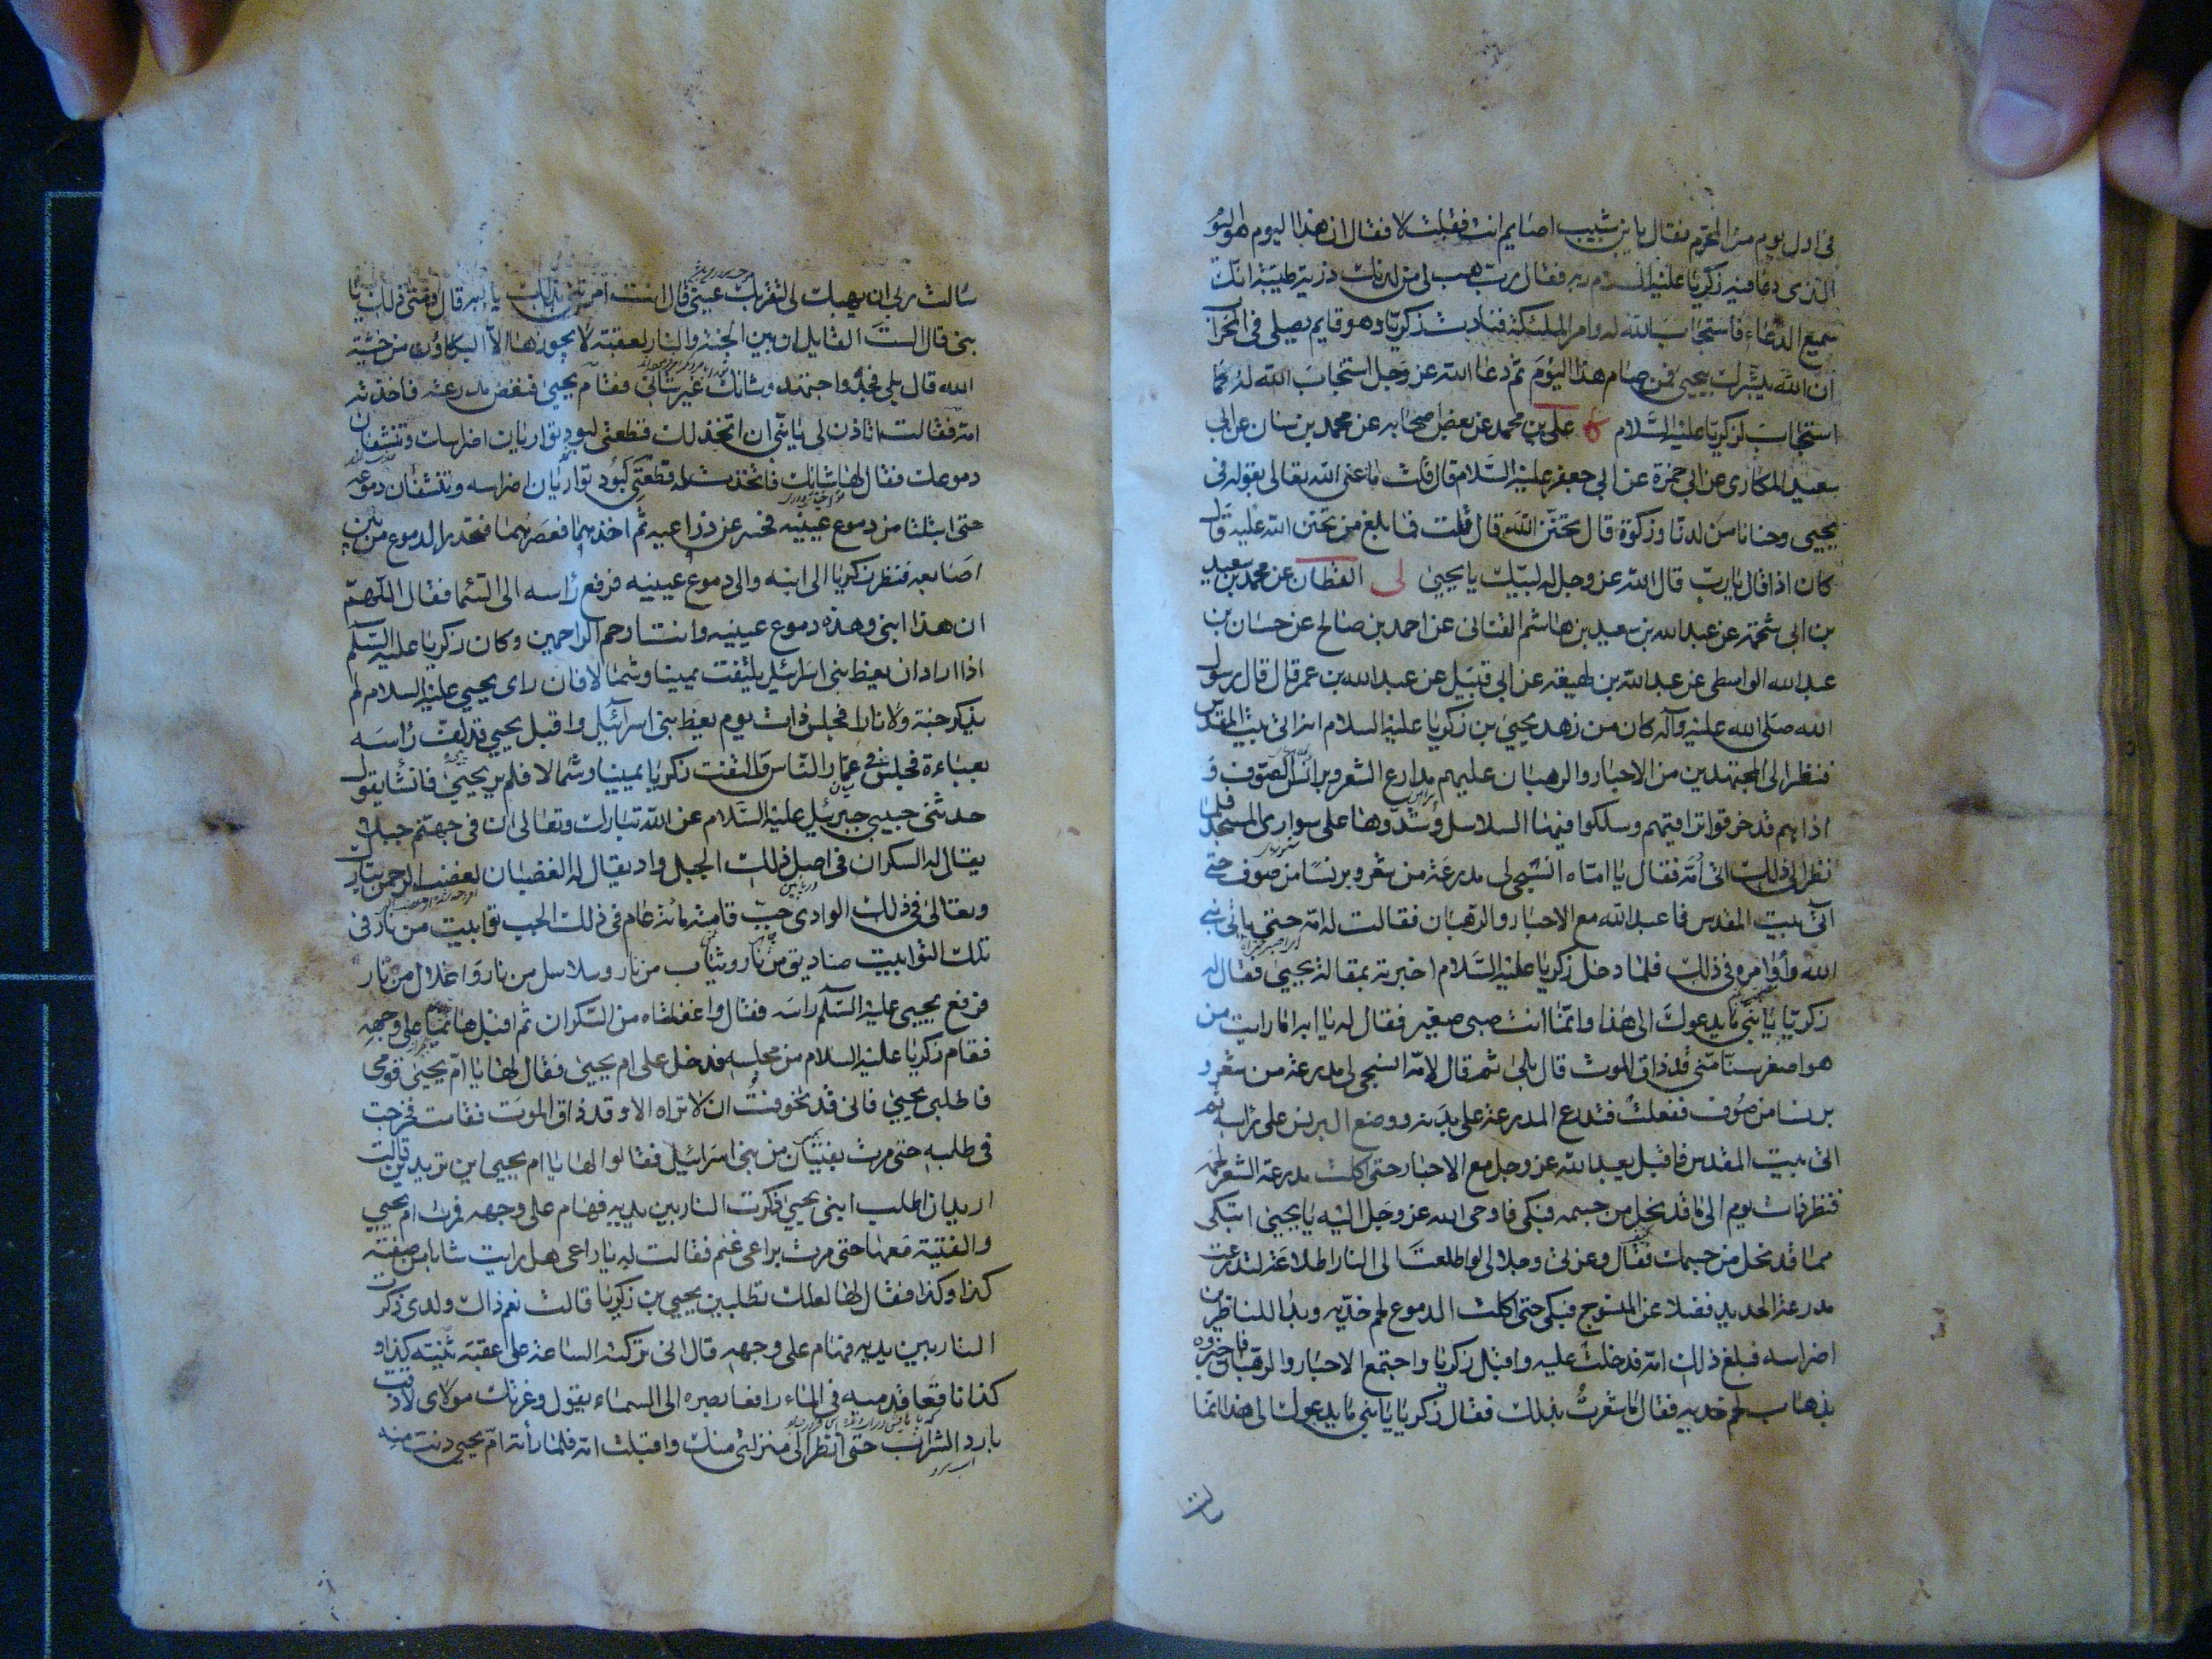 فى اول يوم من المحرم فقال يا بن شبيب اصايم انت فقلت لا فقال ان هذا اليوم هو اليوم
الذى دعا فيه زكريا عليه السلام ربه فقال رب هب لى من لدنك ذرية طيبة انك
سميع الدعاء فاستجاب الله له وامر الملئكة فنادت زكريا وهو قايم يصلى فى المحراب
ان الله يبشرك بيحيى فمن صام هذا اليوم ثم دعا الله عز وجل استجاب الله له كما
استجاب لزكريا عليه السلام على بن محمد عن بعض اصحابه عن محمد بن سنان عن ابى
سعيد المكارى عن ابى حمزة عن ابى جعفر عليه السلام قال قلت ما عنى الله تعالى بقوله فى
يحيى وحنانا من لدنا وزكوة قال تحنن الله قال قلت فما بلغ من تحنن الله عليه قال
كان اذا قال يا رب قال الله عز وجل له لبيك يا يحيى لى القطان عن محمد بن سعيد
بن ابى شحمة عن عبد الله بن سعيد بن هاشم القنانى عن احمد بن صالح عن حسان بن
عبد الله الواسطى عن عبد الله بن لهيعة عن ابى قبيل عن عبد الله بن عمر قال قال رسول
الله صلى الله عليه وآله كان من زهد يحيى بن زكريا عليه السلام انه اتى بيت المقدس
فنظر الى المجتهدين من الاحبار والرهبان عليهم مدارع الشعر وبرانس الصوف و
اذا هم قد خرقوا تراقيهم وسلكوا فيها السلاسل وشدوها على سوارى المسجد فلما
نظر الى ذلك اتى امه فقال يا اماه انسجى لى مدرعة من شعر وبرنسا من صوف حتى
آتى بيت المقدس فاعبد الله مع الاحبار والرهبان فقالت له امه حتى ياتى نبى
الله واؤامره فى ذلك فلما دخل زكريا عليه السلام اخبرته بمقالة يحيى فقال له
زكريا يا بنى ما يدعوك الى هذا وانما انت صبى صغير فقال له يا ابه اما رايت من
هو اصغر سنا منى قد ذاق الموت قال بلى ثم قال لامه انسجى لى مدرعة من شعر و
برنسا من صوف ففعلت فتدرع المدرعة على بدنه ووضع البرنس على راسه ثم
اتى بيت المقدس فاقبل يعبد الله عز وجل مع الاحبار حتى اكلت مدرعة الشعر لحمه
فنظر ذات يوم الى ما قد نحل من جسمه فبكى فاوحى الله عز وجل اليه يا يحيى اتبكى
مما قد نحل من جسمك فقال وعزتى وجلالى لو اطلعت الى النار اطلاعة لتدرعت
مدرعة الحديد فضلا عن المنسوج فبكى حتى اكلت الدموع لحم خديه وبدا للناظرين
اضراسه فبلغ ذلك امه فدخلت عليه واقبل زكريا واجتمع الاحبار والرهبان فاخبروه
بذهاب لحم خديه فقال ما شعرت بذلك فقال زكريا يا بنى ما يدعوك الى هذا انما
سالت
سالت ربى ان يهبك لى لتقر بك عينى قال انت امرتنى بذلك يا ابه قال ومتى ذلك يا
بنى قال الست القايل ان بين الجنة والنار لعقبة لا يجوزها الا البكاؤن من خشية
الله قال بلى فجد واجتهد وشانك غير شانى فقام يحيى فنفض مدرعته فاخذته
امه فقالت اتاذن لى يا بنى ان اتخذ لك قطعتى لبود تواريان اضراسك وتنشفان
دموعك فقال لها شانك فاتخذت له قطعتى لبود تواريان اضراسه وتنشفان دموعه
حتى ابتلتا من دموع عينيه فحسر عن ذراعيه ثم اخذهما فعصرهما فتحدر الدموع من بين
اصابعه فنظر زكريا الى ابنه والى دموع عينيه فرفع راسه الى السماء فقال اللهم
ان هذا ابنى وهذه دموع عينيه وانت ارحم الراحمين وكان زكريا عليه السلام
اذا اراد ان يعظ بنى اسرائيل يلتفت يمينا وشمالا فان راى يحيى عليه السلام لم
يذكر جنة ولا نارا فجلس ذات يوم يعظ بنى اسرآئيل واقبل يحيى قد لف رأسه
بعباءة فجلس فى غمار الناس والتفت زكريا يمينا وشمالا فلم ير يحيى فانشا يقول
حدثنى حبيبى جبرئيل عليه السلام عن الله تبارك وتعالى ان فى جهنم جبلا
يقال له السكران فى اصل ذلك الجبل واد يقال له الغضبان لغضب الرحمن تبارك
وتعالى فى ذلك الوادى جب قامته مائة عام فى ذلك الجب توابيت من نار فى
تلك التوابيت صناديق من نار وثياب من نار وسلاسل من نار واغلال من نار
فرفع يحيى عليه السلام راسه فقال واغفلتاه من السكران ثم اقبل هائما على وجهه
فقام زكريا عليه السلام من مجلسه فدخل على ام يحيى فقال لها يا ام يحيى قومى
فاطلبى يحيى فانى قد تخوفت ان لا نراه الا وقد ذاق الموت فقامت فخرجت
فى طلبه حتى مرت بفتيان من بنى اسرائيل فقالوا لها يا ام يحيى اين تريدين قالت
اريد ان اطلب ابنى يحيى ذكرت النار بين يديه فهام على وجهه فمرت ام يحيى
والفتية معها حتى مرت براعى غنم فقالت له يا راعى هل رايت شابا من صفته
كذا وكذا فقال لها لعلك تطلبين يحيى بن زكريا قالت نعم ذاك ولدى ذكرت
النار بين يديه فهام على وجهه قال انى تركته الساعة على عقبة ثنية كذا و
كذا ناقعا قدميه فى الماء رافعا بصره الى السماء يقول وعزتك مولاى لا ذقت
بارد الشراب حتى انظر الى منزلتى منك واقبلت امه فلما رأته ام يحيى دنت منه